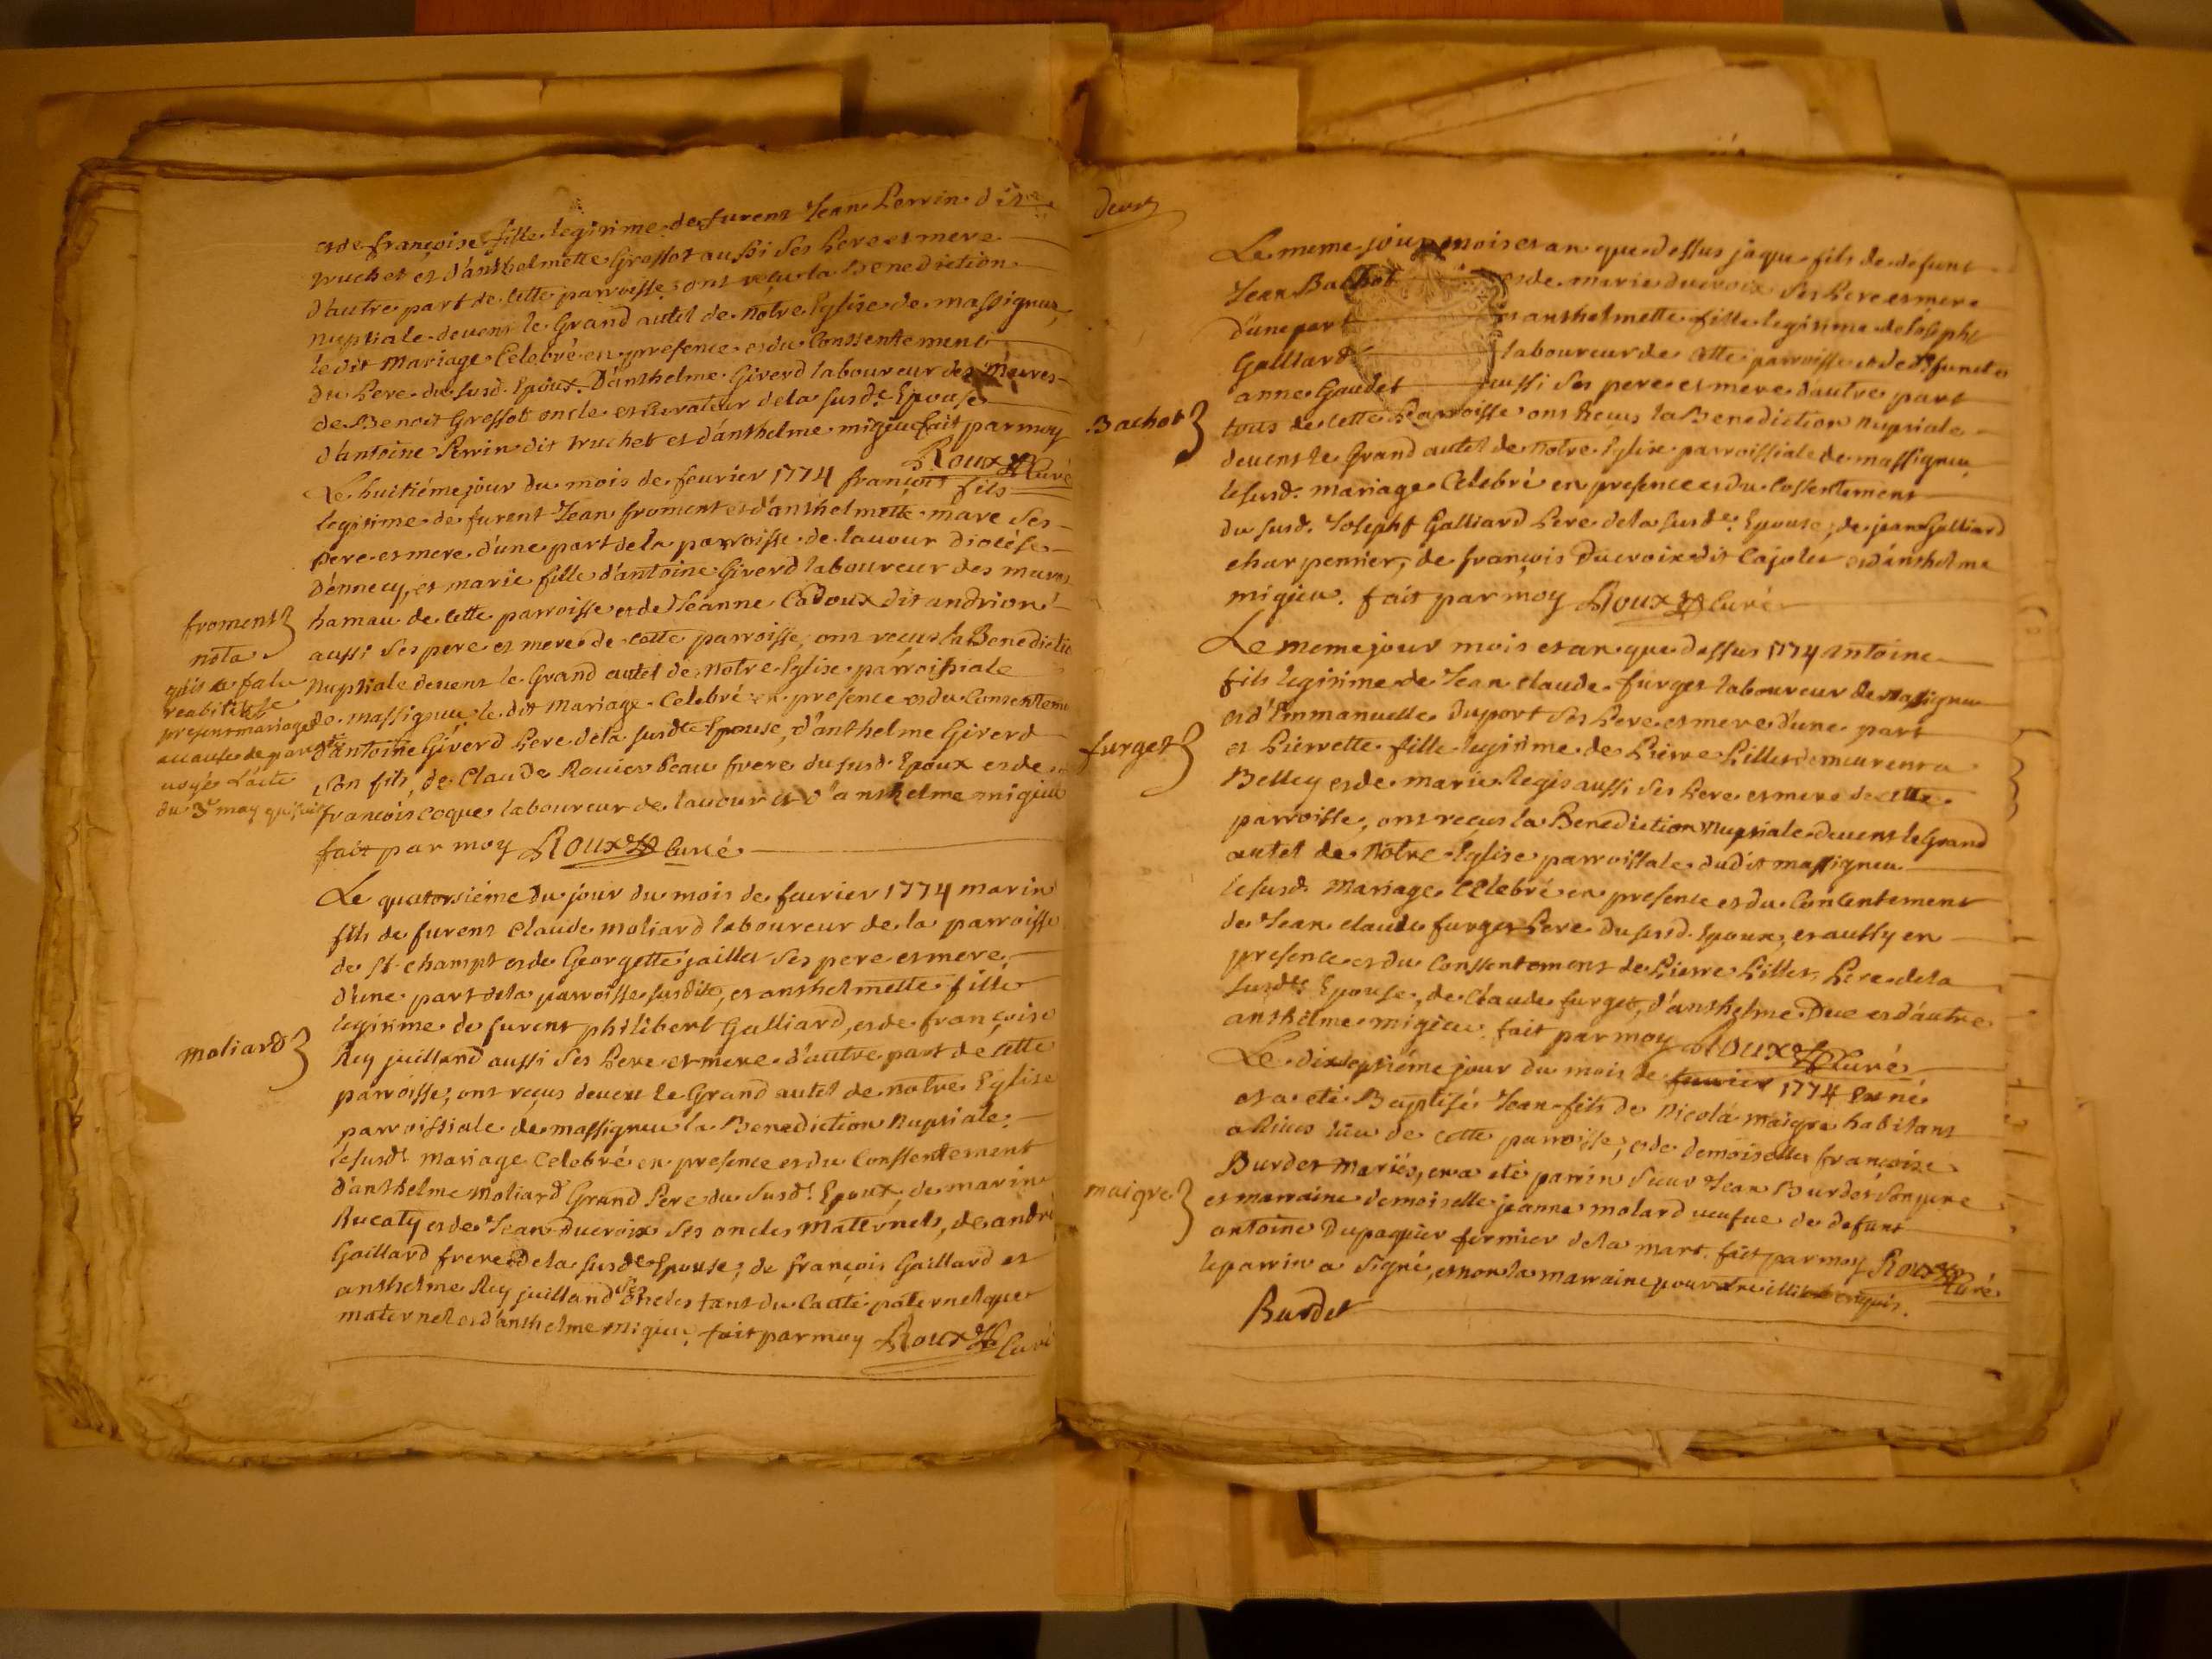 et de françoise fille legitime de furent Jean Perrin dit
truchet et d'anthelmette Grossot aussi ses Pere et mere
d'autre part de cette parroisse ont reçu la Benediction
nuptiale devent le Grand autel de notre Eglise de massignieu
le dit mariage Celebré en presence et du Conssentement
du Pere du susd. Epoux D'anthelme Giverd laboureur des meures
de Benoit Grossot oncle et Curateur de la susd.e Epouse
d'antoine Perrin dit truchet et d'anthelme migieu fait par moy
Roux Curé
Le huitiéme jour du mois de feurier 1774 françois fils
legitime de furent Jean froment et d'anthelmette mare ses
pere et mere d'une part de la parroisse de lavour diocése
D'ennecy, et marie fille d'antoine Giverd laboureur des mures
froment
hamau de cette parroisse et de Jeanne Cadoux dit andrion
nota
aussi ses pere et mere de cette parroisse, ont reçus la Benedictio
qu'il a falu
nuptiale devent le Grand autel de notre Eglise parroissiale
reabiliter le
de massignieu le dit mariage Celebré en presence et du Consenteme
present mariage
d'antoine Giverd Pere de la susdte Epouse, d'anthelme Giverd
a cause de parenté
son fils, de Claude Rouier Beau frere du susd. Epoux et de
voyé l'acte
françois coques laboureur de lavour et d'anthelme migieu
du 3e may qui suit
fait par moy Roux Curé
Le quatorsiéme du jour du mois de feurier 1774 marin
fils de furent Claude moliard laboureur de la parroisse
de St champt et de Georgette jaillet ses pere et mere
d'une part de la parroisse susdite, et anthelmette fille
legitime de furent philibert Galliard, et de françoise
moliard
Rey juilland aussi ses Pere et mere d'autre part de cette
parroisse, ont reçus devent le Grand autel de notre Eglise
parroissiale de massignieu la Benediction Nuptiale.
le susdt mariage Celebré en presence et du Conssentement
d'anthelme moliard Grand Pere du susdt Epoux, de marin
Rucaty et de Jean Ducroix ses oncles maternels, de andré
Gaillard frere de la susde Epouse, de françois Gaillard et
anthelme Rey juilland ses oncles tant du Cauté paternel que
maternel et d'anthelme migieu, fait par moy Roux Curé
deux
Le meme jour mois et an que dessus jaque fils de defunt
Jean Bachot et de marie ducroix ses Pere et mere
d'une part et anthelmette fille legitime de Joseph
Galliard laboureur de cette parroisse et de defuncte
anne Gaudet aussi ses pere et mere d'autre part
Bachot
tous de cette Parroisse ont Reçus la Benediction nuptiale
devent le Grand autel de notre Eglise parroissiale de massignieu
le susd. mariage Celebré en presence et du Cossentement
du susd. Joseph Galliard Pere de la susde Epouse, de jean Galliard
charpentier, de françois Ducroix dit Cajolet et d'anthelme
migieu. fait par moy Roux Curé
Le meme jour mois et an que dessus 1774 antoine
fils legitime de Jean claude furget laboureur de massignieu
et d'Emmanuelle Duport ses Pere et mere d'une part
furget
et Pierrette fille legitime de Pierre Pillet demeurent a
Belley et de marie Legis aussi ses Pere et mere de cette
parroisse, ont reçus la Benediction nuptiale devent le Grand
autel de notre Eglise parroissale dudit massignieu
le susd. mariage Celebré en presence et du Consentement
de Jean claude furget Pere du susd. Epoux, et aussy en
presence et du Conssentement de Pierre Pillet, Pere de la
susdte Epouse, de Claude furget, d'anthelme Duc et d'autre
anthelme migieu. fait par moy Roux Curé
Le dixseptiéme jour du mois de feurier 1774 est né
et a eté Baptisé Jean fils de Nicola maigre habitant
de cette parroisse, et de demoiselle françoise
maigre
Burdet mariés, et a eté parrin Sieur Jean Burdet son
et marraine demoiselle jeanne molard veufve de defunt
antoine Dupaquier fermier de la mart. fait par moy Roux
le parrin a signé, et non la marraine pour Curé
Burdet